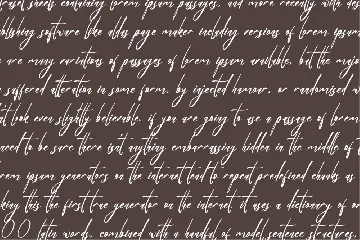 sheets containing lorem ipsum passages, and more recently with des
publishing software like aldus page maker including versions of lorem ipsum
are many variations of passages of lorem ipsum available, but the major
suffered alteration in some form, by injected humour, or randomised w
look even slightly believable. if you are going to use a passage of lorem
need to be sure there isn't anything embarrassing hidden in the middle of t
lorem ipsum generators on the internet tend to repeat predefined chunks as
king this the first true generator on the internet. it uses a dictionary of ov
00 latin words, combined with a handful of model sentence structures,